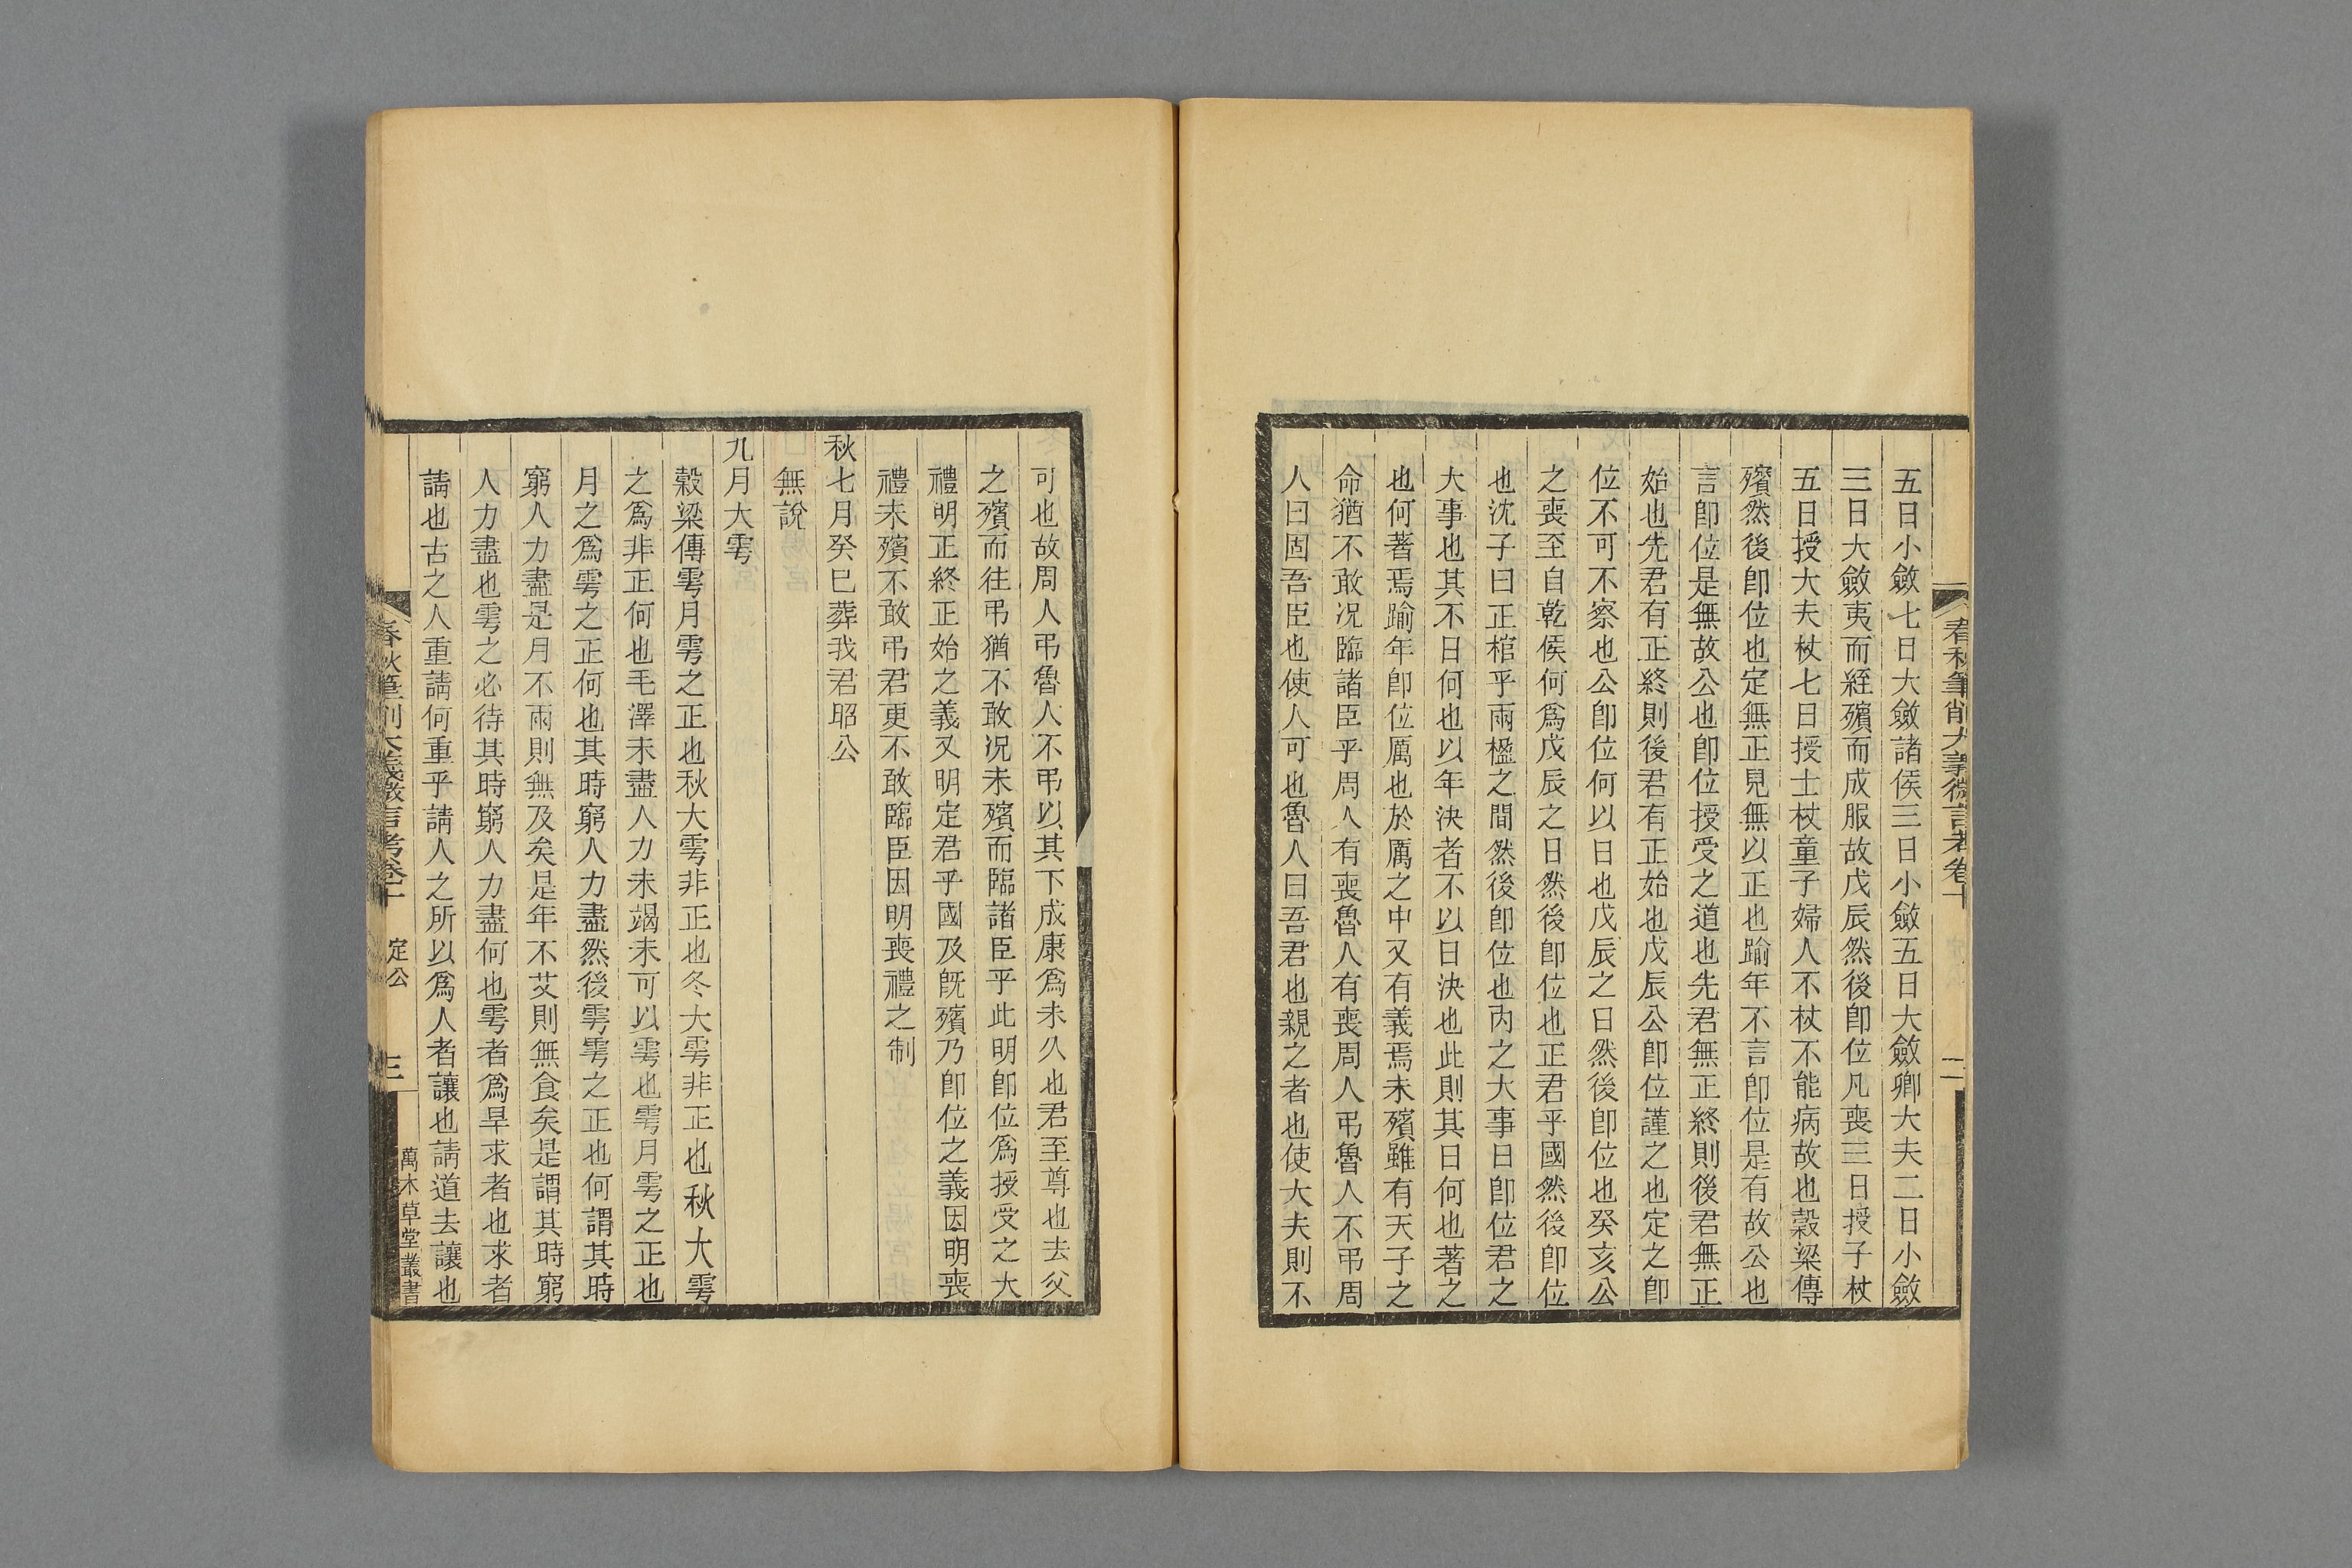 春秋筆削大義微言考卷十
二
五日小斂七日大斂諸侯三日小斂五日大斂卿大夫二日小斂
三日大斂夷而絰殯而成服故戊辰然後卽位凡喪三日授子杖
五日授大夫杖七日授士杖童子婦人不杖不能病故也穀梁傳
殯然後卽位也定無正見無以正也踰年不言卽位是有故公也
言卽位是無故公也卽位授受之道也先君無正終則後君無正
始也先君有正終則後君有正始也戊辰公卽位謹之也定之卽
位不可不察也公卽位何以日也戊辰之日然後卽位也癸亥公
之喪至自乾侯何爲戊辰之日然後卽位也正君乎國然後卽位
也沈子曰正棺乎兩楹之間然後卽位也內之大事日卽位君之
大事也其不日何也以年決者不以日決也此則其日何也著之
也何著焉踰年卽位厲也於厲之中又有義焉未殯雖有天子之
命猶不敢况臨諸臣乎周人有喪魯人有喪周人弔魯人不弔周
人曰固吾臣也使人可也魯人曰吾君也親之者也使大夫則不
可也故周人弔魯人不弔以其下成康爲未久也君至尊也去父
之殯而往弔猶不敢况未殯而臨諸臣乎此明卽位爲授受之大
禮明正終正始之義又明定君乎國及旣殯乃卽位之義因明喪
禮未殯不敢弔君更不敢臨臣因明喪禮之制
秋七月癸巳葬我君昭公
無說
九月大雩
穀梁傳雩月雩之正也秋大雩非正也冬大雩非正也秋大雩
之爲非正何也毛澤未盡人力未竭未可以雩也雩月雩之正也
月之爲雩之正何也其時窮人力盡然後雩雩之正也何謂其時
窮人力盡是月不雨則無及矣是年不艾則無食矣是謂其時窮
人力盡也雩之必待其時窮人力盡何也雩者爲旱求者也求者
請也古之人重請何重乎請人之所以爲人者讓也請道去讓也
春秋筆削大義微言考卷十
定公
三
萬木草堂叢書